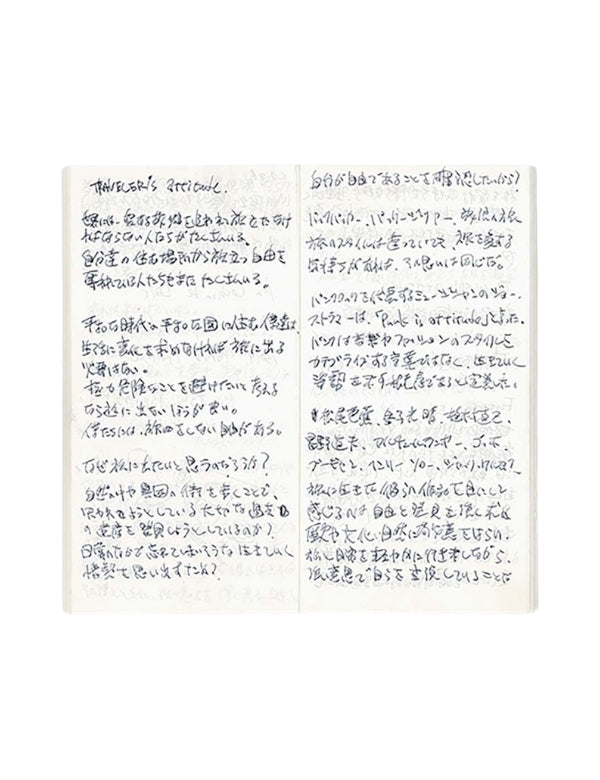 TRAVELER'S attitude.
世界には、望まぬ旅を強いられ旅をし続け
ればならない人たちがたくさんいる。
自分達の住む場所から旅立つ自由を
奪われている人たちもまたたくさんいる。
平和な時代の平和な国に住む僕達は
生活に変化を求めなければ旅に出る
必要はない。
極力危険なことを避けたいと考える
なら旅に出ないほうが良い。
僕たちには、旅をしない自由がある。
なぜ旅に出たいと思うのだろうか?
自然の中や異国の街を歩くことで、
失われようとしている大切な過去
の遺産を発見しようとしているのか?
日常のなかで忘れてしまいそうな生きていく
情熱を思い出すため?
自分が自由であることを確認したいから?
バックパッカー、バッグジャー、旅
旅のスタイルは違っていても、旅を愛する
気持ちがあれば、その思いは同じだ。
パンクロックを代表するミュージシャンのジョー・
ストラマーは、「Punk is attitude」と言った。
パンクは音楽やファッションのスタイルを
カテゴライズする言葉ではなく、生きていく
姿勢を示す態度であると定義した。
松尾芭蕉、金子光晴、植村直己、
星野道夫、ゴッホ、
ゴーギャン、ヘンリー・ソロー、ジャック・ケルアック
旅に生きた彼らの作品を目にして
感じるのは自由と発見を強く求め
歴史や文化、自然に敬意をはらい、
旅と日常を軽やかに行き来しながら、
強い意思で自らを変換していることだ